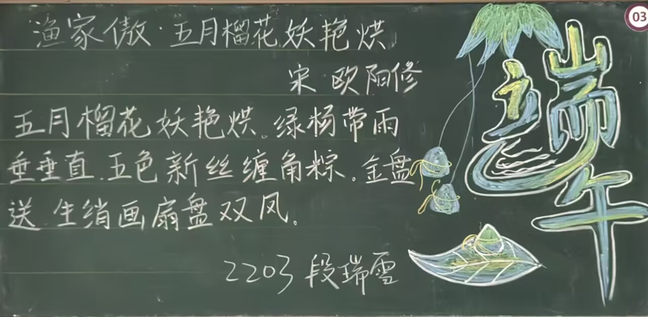 渔家傲·五月榴花妖艳烘
宋·欧阳修
五月榴花妖艳烘。绿杨带雨
垂垂直.五色新丝缠角粽.金盘
送 生绡画扇盘双凤。
2203 段瑞雪
端午
03